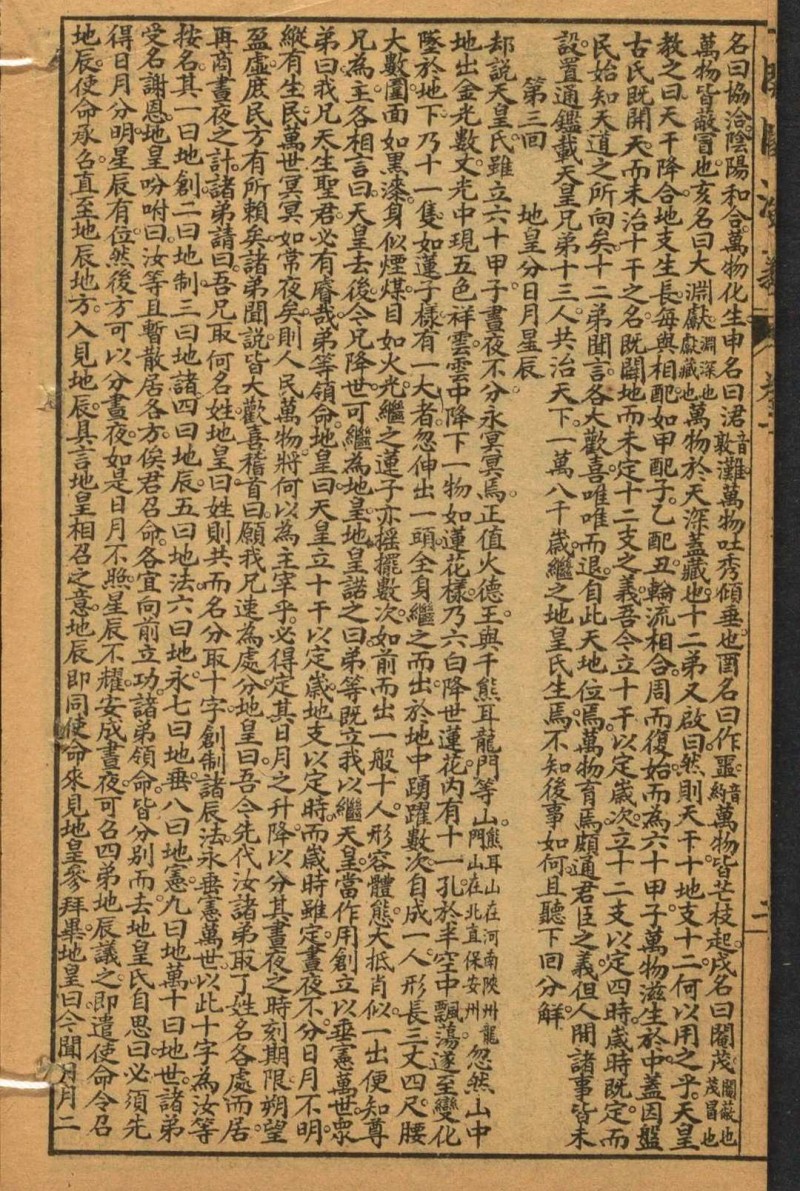 名曰協洽陰陽和合萬物化生申名曰涒音敦灘萬物吐秀傾垂也酉名曰作噩音約萬物皆芒枝起戌名曰閹茂閹蔽也茂冒也
萬物皆蔽冒也亥名曰大淵獻淵深也獻藏也萬物於天深蓋藏也十二弟又啟曰然則天干十地支十二何以用之乎天皇
教之曰天干降合地支生長每與相配如甲配子乙配丑輪流相合周而復始而為六十甲子萬物滋生於中蓋因盤
古氏既開天而未治十干之名既闢地而未定十二支之義吾今立十干以定歲次立十二支以定四時歲時既定而
民始知天道之所向矣十二弟聞言各大歡喜唯唯而退自此天地位焉萬物育焉頗通君臣之義但人間諸事皆未
設置通鑑載天皇兄弟十三人共治天下一萬八千歲繼之地皇氏生焉不知後事如何且聽下回分解
第三回 地皇分日月星辰
却說天皇氏雖立六十甲子晝夜不分永冥冥焉正值火德王與千熊耳龍門等山熊耳山在河南陝州龍門山在北直保安州忽然山中
地出金光數丈光中現五色祥雲雲中降下一物如蓮花樣乃六白降世蓮花內有十一孔於半空中飄蕩遂至變化
墜於地下乃十一隻如蓮子樣有一大者忽伸出一頭全身繼之而出於地中踴躍數次自成一人形長三丈四尺腰
大數圍面如黑漆身似煙煤目如火光繼之蓮子亦搖擺數次如前而出一般十人形容體態大抵肖似一出便知尊
兄為主各相言曰天皇去後令兄降世可繼為地皇地皇諾之曰弟等既立我以繼天皇當作用創立以垂憲萬世眾
弟曰我兄天生聖君必有睿哉弟等領命地皇曰天皇立十干以定歲地支以定時而歲時雖定晝夜不分日月不明
縱有生民萬世冥冥如常夜矣則人民萬物將何以為主宰乎必得定其日月之升降以分其晝夜之時刻期限朔望
盈虛庶民方有所賴矣諸弟聞說皆大歡喜稽首曰願我兄速為處分地皇曰吾今先代汝諸弟取了姓名各處而居
再商晝夜之計諸弟請曰吾兄取何名姓地皇曰姓則共而名分取十字創制諸辰法永垂憲萬世以此十字為汝等
按名其一曰地創二曰地制三曰地諸四曰地辰五曰地法六曰地永七曰地垂八曰地憲九曰地萬十曰地世諸弟
受名謝恩地皇吩咐曰汝等且暫散居各方俟君召命各宜向前立功諸弟領命皆分別而去地皇氏自思曰必須先
得日月分明星辰有位然後方可以分晝夜如是日月不照星辰不耀安成晝夜可召四弟地辰議之即遣使命令召
地辰使命承召直至地辰地方入見地辰具言地皇相召之意地辰即同使命來見地皇參拜畢地皇曰今聞日月二